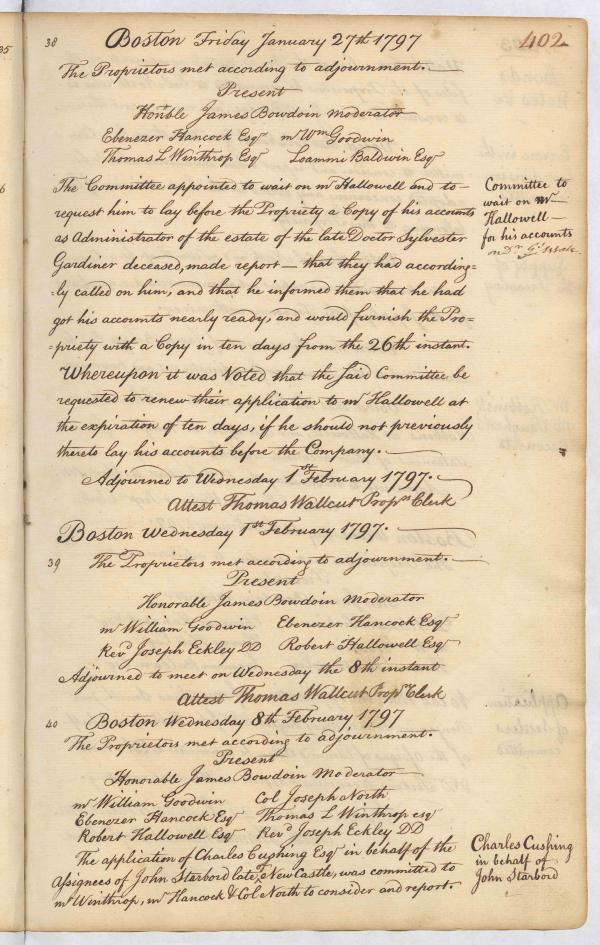 402
38 Boston Friday January 27th 1797
The Proprietors met according to adjournment.
Present
Honble James Bowdoin moderator
Ebenezer Hancock Esqr mr Wm Goodwin
Thomas L Winthrop Esqr Loammi Baldwin Esqr
The Committee appointed to wait on mr Hallowell and to
request him to lay before the Propriety a Copy of his accounts
as Administrator of the estate of the late Doctor Sylvester
Gardiner deceased, made report — that they had according=
=ly called on him, and that he informed them that he had
got his accounts nearly ready, and would furnish the Pro=
=priety with a Copy in ten days from the 26th instant.
Committee to
wait on mr
Hallowell
for his accounts
on Dr G's
Whereupon it was Noted that the said Committee be
requested to renew their application to mr Hallowell at
the expiration of ten days, if he should not previously
thereto lay his accounts before the Company.
Adjourned to Wednesday 1st February 1797.
Attest Thomas Wallcut Proprs Clerk
Boston Wednesday 1st February 1797.
39 The Proprietors met according to adjournment.
Present
Honorable James Bowdoin Moderator
mr William Goodwin Ebenezer Hancock Esqr
Revd Joseph Eckley DD Robert Hallowell Esqr
Adjourned to meet on Wednesday the 8th instant
Attest Thomas Wallcut Propr Clerk
40 Boston Wednesday 8th February 1797
The Proprietors met according to adjournment.
Present
Honorable James Bowdoin Moderator
mr William Goodwin Col Joseph North
Ebenezer Hancock Esqr Thomas L Winthrop esqr
Robert Hallowell Esqr Revd Joseph Eckley DD
The application of Charles Cushing Esqr in behalf of the
Assignees of John Starbord late of New Castle, was committed to
mr Winthrop, mr Hancock & Col North to consider and report.
Charles Cushing
in behalf of
John Starbord